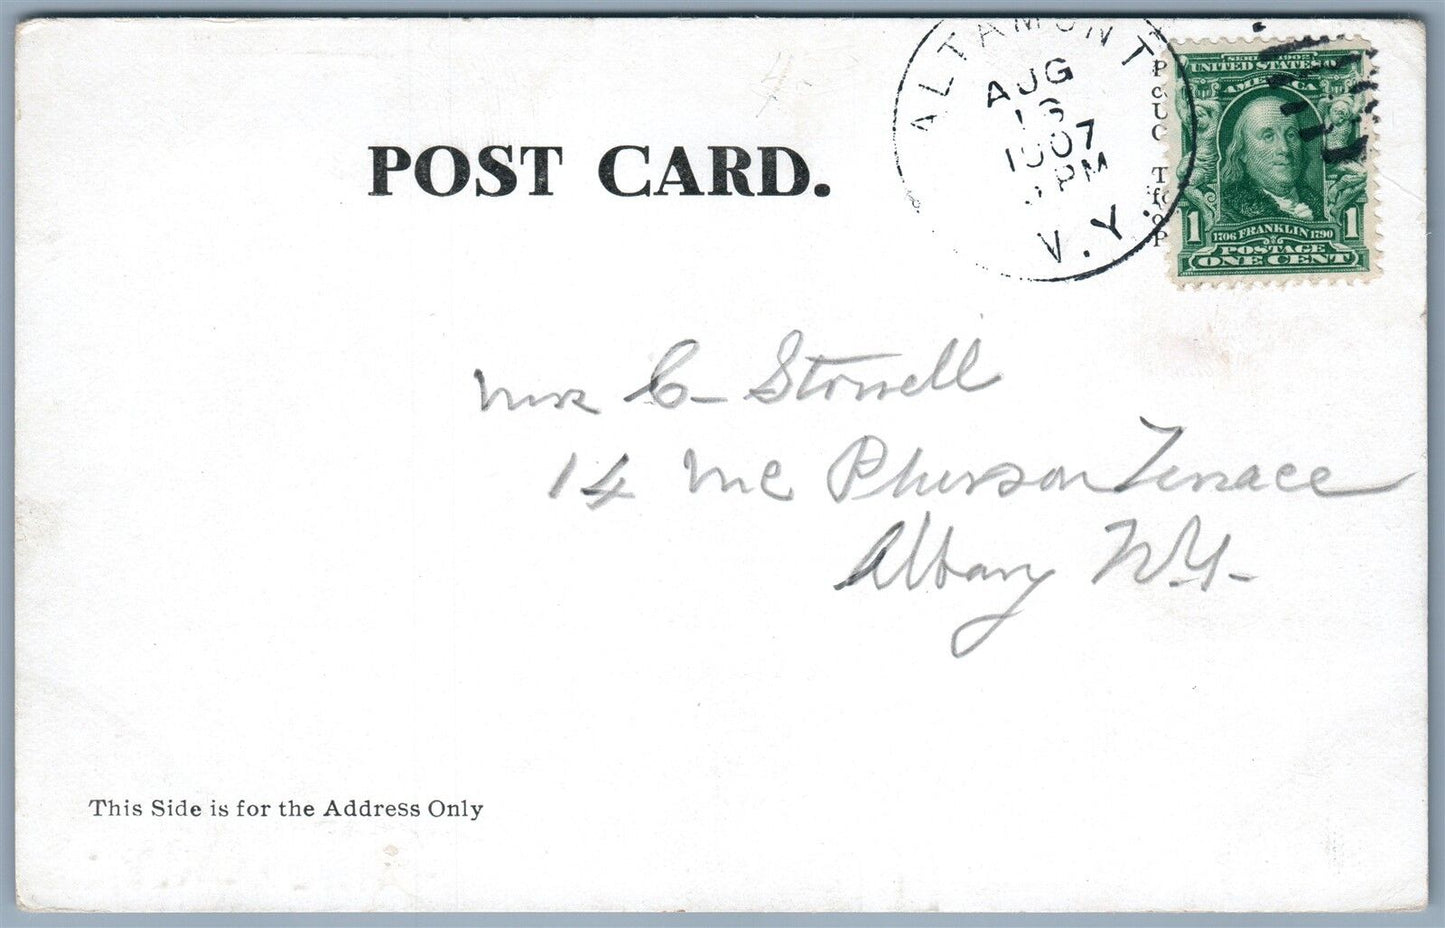 ALTAMONT
AUG
16
1907
PM
N.Y.
P
UNITED STATES OF
AMERICA
1 1
1706 FRANKLIN 1790
POSTAGE
ONE CENT
POST CARD.
Mrs C- Storrell
14 Mc Pherson Terrace
Albany N.Y-
This Side is for the Address Only